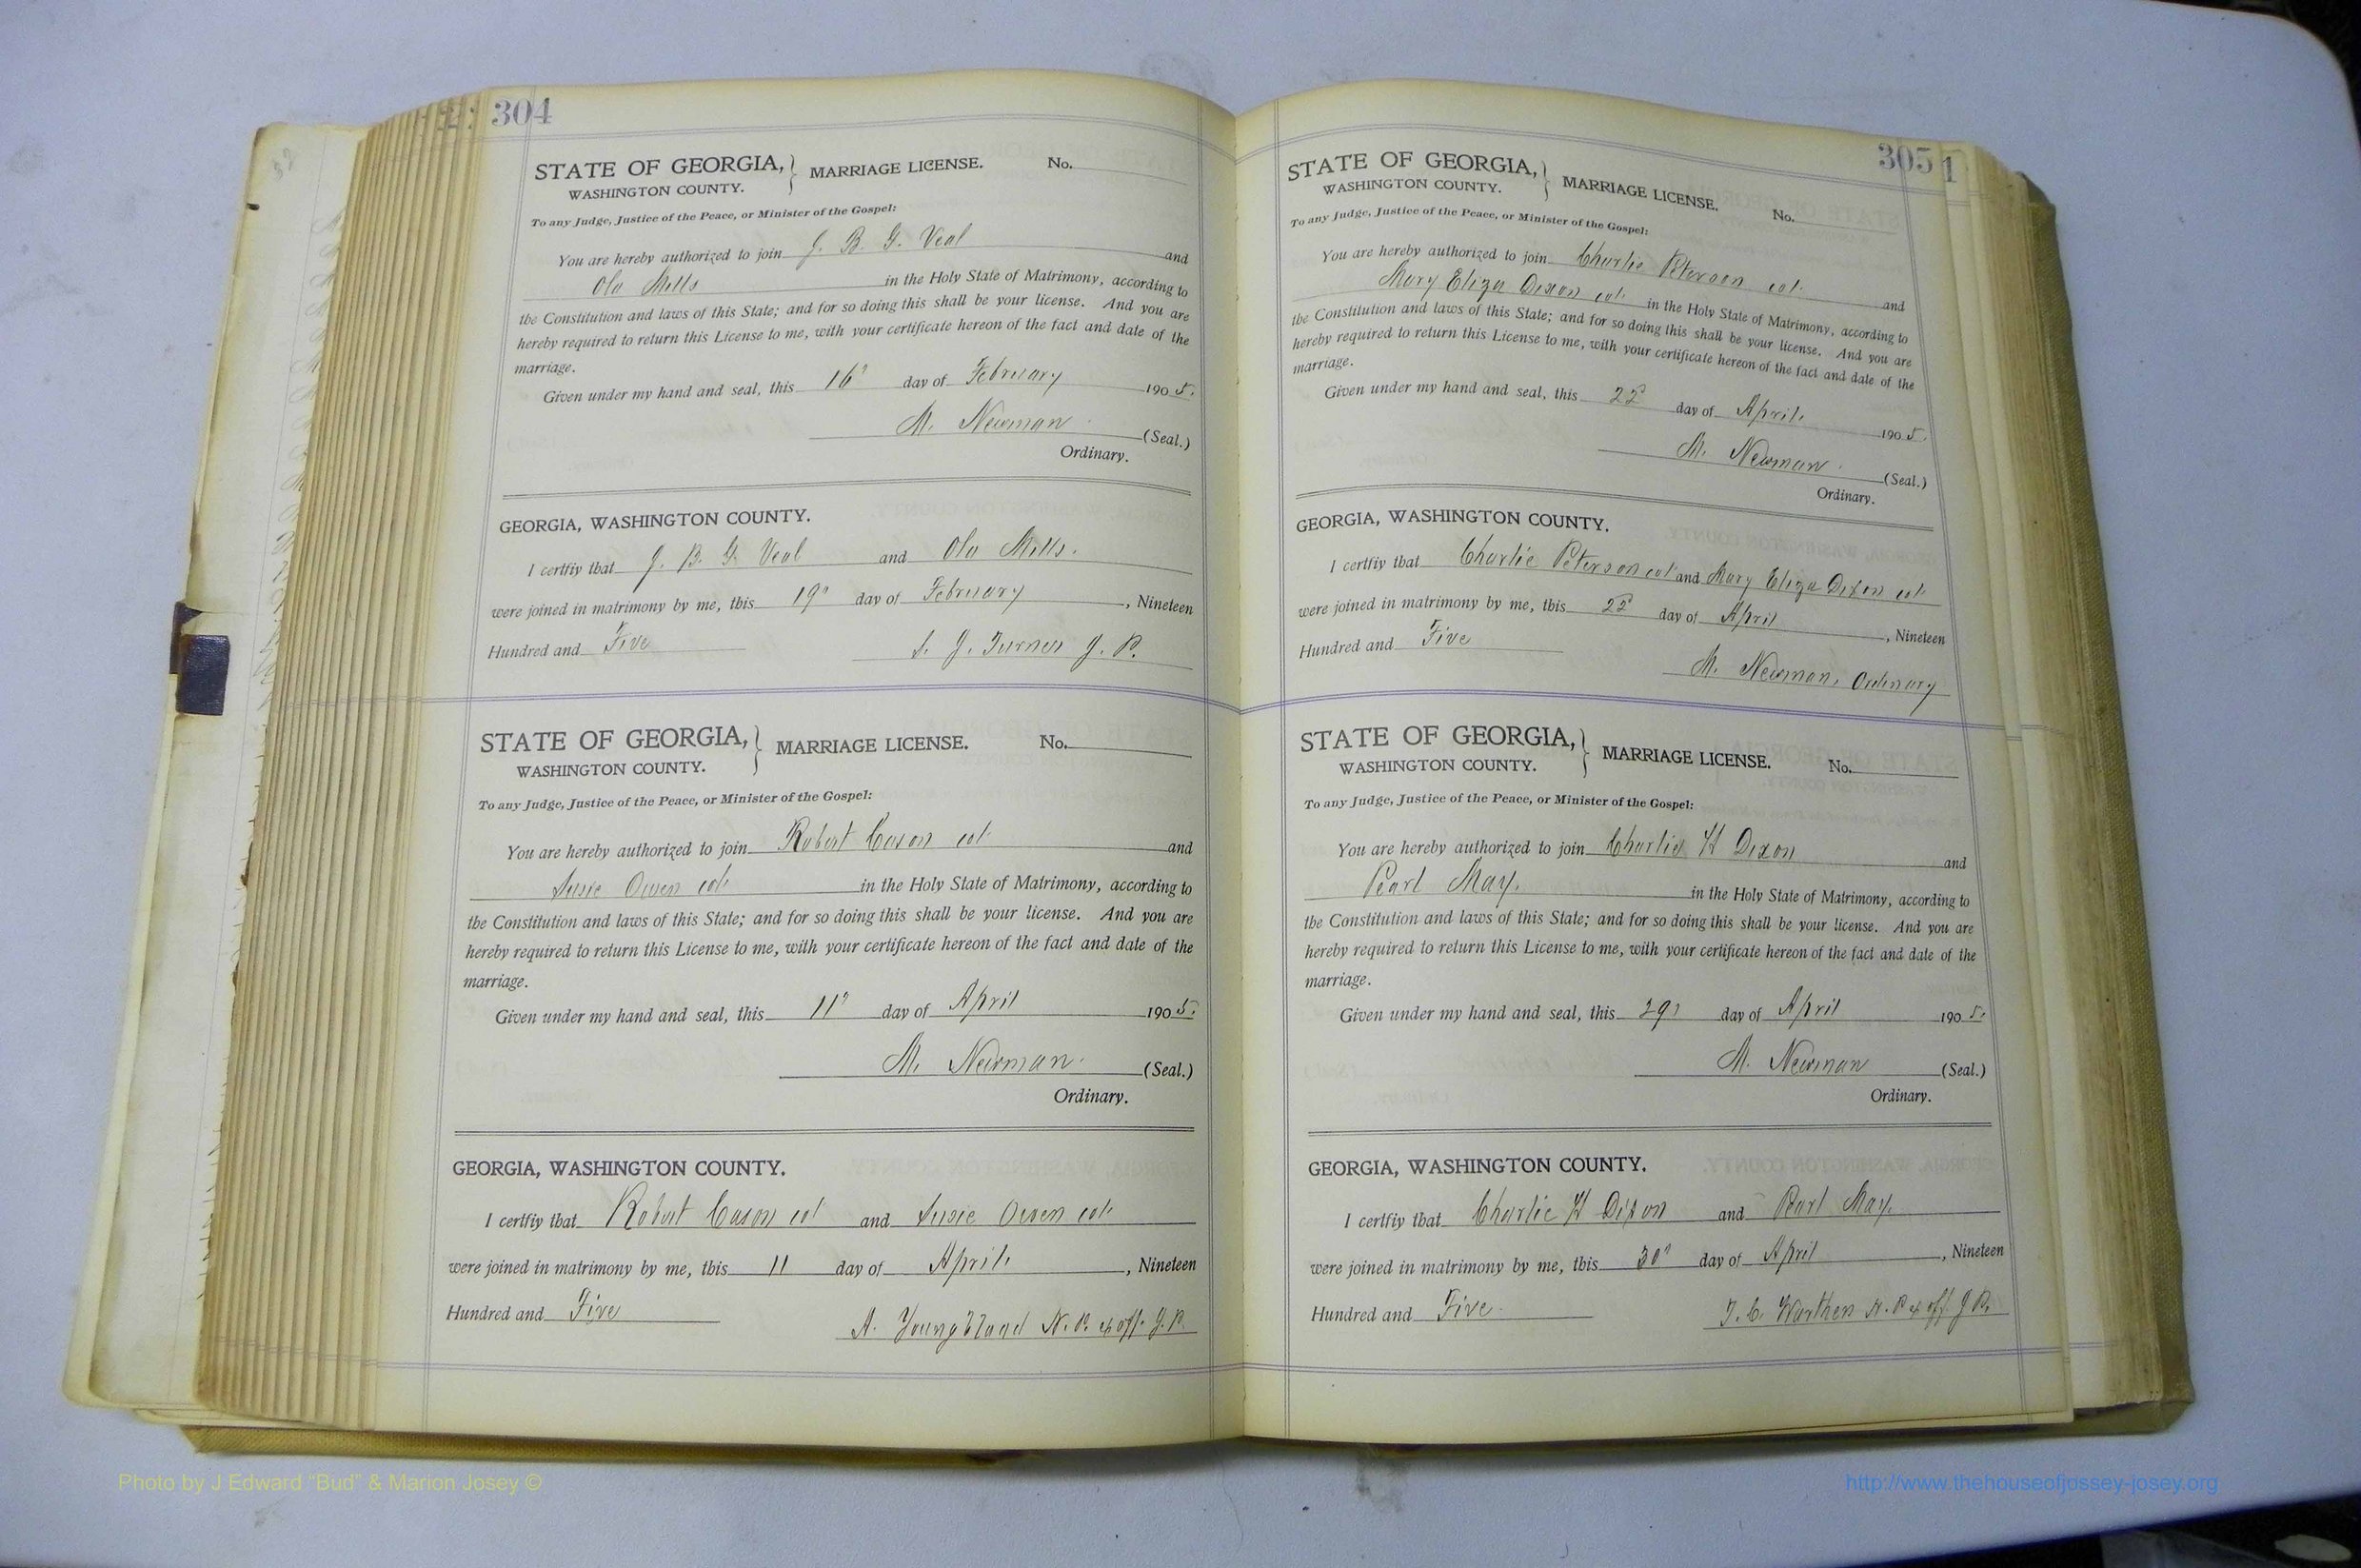 304
STATE OF GEORGIA, } MARRIAGE LICENSE. No.
WASHINGTON COUNTY.
To any Judge, Justice of the Peace, or Minister of the Gospel:
You are hereby authorized to join J. B. G. Veal and
Ola Mills in the Holy State of Matrimony, according to
the Constitution and laws of this State; and for so doing this shall be your license. And you are
hereby required to return this License to me, with your certificate hereon of the fact and date of the
marriage.
Given under my hand and seal, this 16" day of February 1905.
M. Newman (Seal.)
Ordinary.
GEORGIA, WASHINGTON COUNTY.
I certfiy that J. B. G. Veal and Ola Mills.
were joined in matrimony by me, this 19" day of February, Nineteen
Hundred and Five
J. Turner J. P.
STATE OF GEORGIA, } MARRIAGE LICENSE. No.
WASHINGTON COUNTY.
To any Judge, Justice of the Peace, or Minister of the Gospel:
You are hereby authorized to join Robert Cason col and
Susie Owen col. in the Holy State of Matrimony, according to
the Constitution and laws of this State; and for so doing this shall be your license. And you are
hereby required to return this License to me, with your certificate hereon of the fact and date of the
marriage.
Given under my hand and seal, this 11" day of April 1905.
M. Newman. (Seal.)
Ordinary.
GEORGIA, WASHINGTON COUNTY.
I certfiy that Robert Cason col and Susie Owen col.
were joined in matrimony by me, this 11 day of April, Nineteen
Hundred and Five
A. Youngblood N. P. ex off. J. P.
305 1
STATE OF GEORGIA, } MARRIAGE LICENSE. No.
WASHINGTON COUNTY.
To any Judge, Justice of the Peace, or Minister of the Gospel:
You are hereby authorized to join Charlie Peterson col. and
Mary Eliza Dixon col. in the Holy State of Matrimony, according to
the Constitution and laws of this State; and for so doing this shall be your license. And you are
hereby required to return this License to me, with your certificate hereon of the fact and date of the
marriage.
Given under my hand and seal, this 22 day of April 1905.
M. Newman. (Seal.)
Ordinary.
GEORGIA, WASHINGTON COUNTY.
I certfiy that Charlie Peterson col and Mary Eliza Dixon col
were joined in matrimony by me, this 22 day of April, Nineteen
Hundred and Five
M. Newman, Ordinary
STATE OF GEORGIA, } MARRIAGE LICENSE. No.
WASHINGTON COUNTY.
To any Judge, Justice of the Peace, or Minister of the Gospel:
You are hereby authorized to join Charlie H Dixon and
Pearl May. in the Holy State of Matrimony, according to
the Constitution and laws of this State; and for so doing this shall be your license. And you are
hereby required to return this License to me, with your certificate hereon of the fact and date of the
marriage.
Given under my hand and seal, this 29" day of April 1905.
M. Newman (Seal.)
Ordinary.
GEORGIA, WASHINGTON COUNTY.
I certfiy that Charlie H Dixon and Pearl May.
were joined in matrimony by me, this 30" day of April, Nineteen
Hundred and Five.
T. C. Warthen N. P. ex off J. P.
Photo by J Edward “Bud” & Marion Josey ©
http://www.thehouseofjossey-josey.org